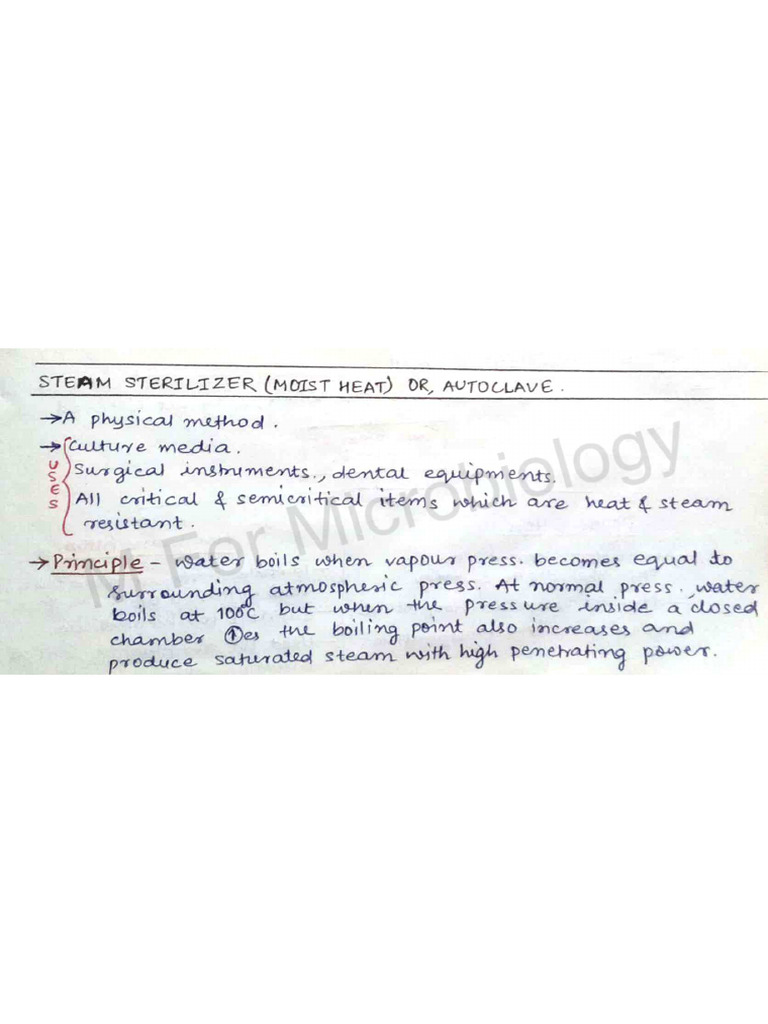 STEAM STERILIZER (MOIST HEAT) OR, AUTOCLAVE.
→ A physical method.
→ Culture media.
USES
Surgical instruments., dental equipments.
All critical & semicritical items which are heat & steam
resistant.
→ Principle - Water boils when vapour press. becomes equal to
surrounding atmospheric press. At normal press., water
boils at 100°C but when the pressure inside a closed
chamber ↑es the boiling point also increases and
produce saturated steam with high penetrating power.
M For Microbiology